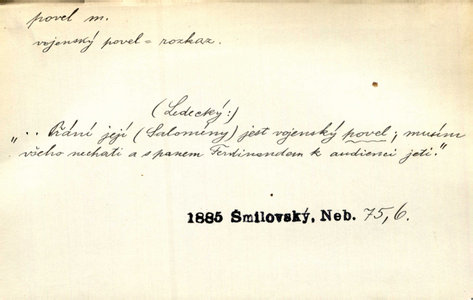 povel m.
vojenský povel = rozkaz.
(Ledecký:)
".. Přání její (Salomény) jest vojenský povel; musím
všeho nechati a s panem Ferdinandem k audienci jeti."
1885 Šmilovský, Neb. 75,6.